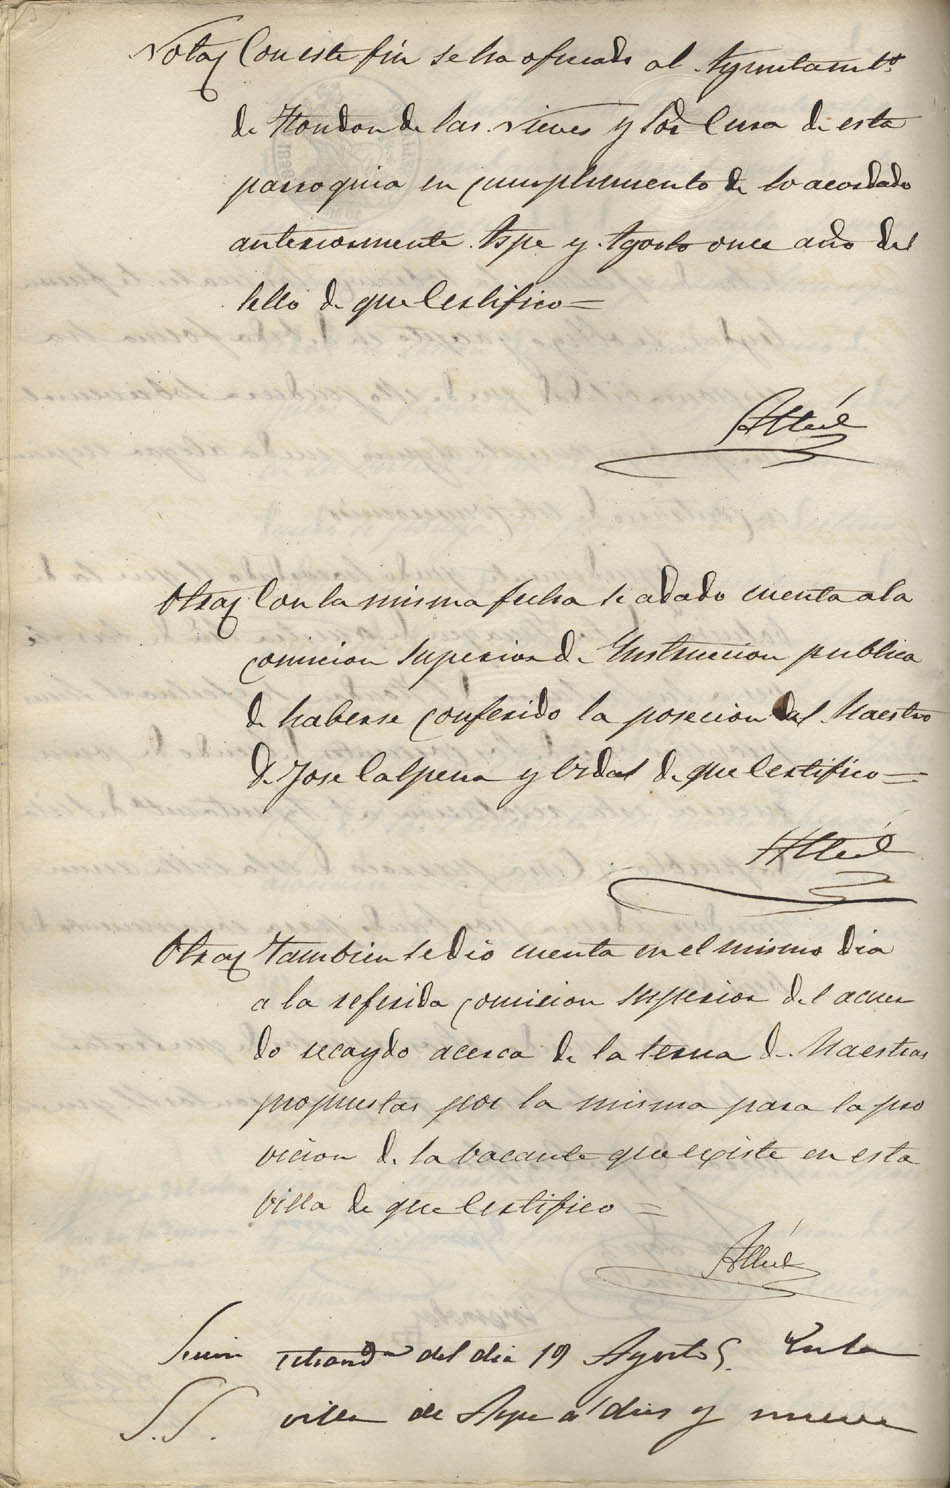 Nota Con este fin se ha oficiado al Ayuntamto
de Hondon de las Nieves y Sor Cura de esta
parroquia en cumplimiento de lo acordado
anteriormente. Aspe y Agosto once año del
sello de que Certifico=
Otra Con la misma fecha se a dado cuenta a la
comicion superior de Instruccion publica
de haberse conferido la posecion del Maestro
Dn Jose Calpena y Vidal de que Certifico=
Otra Tambien se dió cuenta en el mismo dia
a la referida comicion superior del acuer
do recaydo acerca de la terna de Maestras
propuestas por la misma para la pro
vicion de la bacante que existe en esta
villa de que Certifico=
del dia 19 Agosto En la
S.S. villa de Aspe a dies y nueve